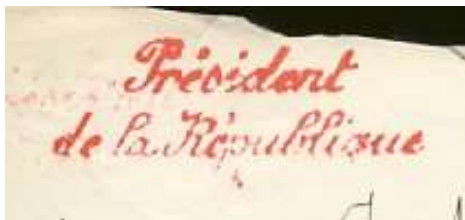 Président
de la République